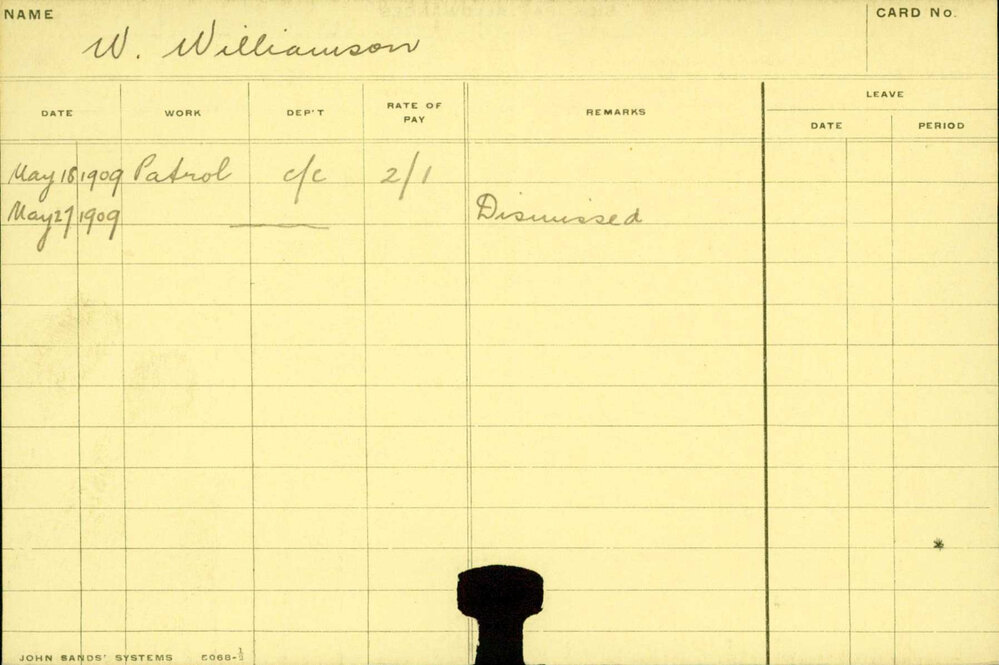 NAME
W. Williamson
CARD No.
DATE WORK DEP'T RATE OF PAY REMARKS
LEAVE
DATE PERIOD
May 18 1909 Patrol c/c 2/1
May 27 1909 Dismissed
JOHN SANDS' SYSTEMS 5068-½